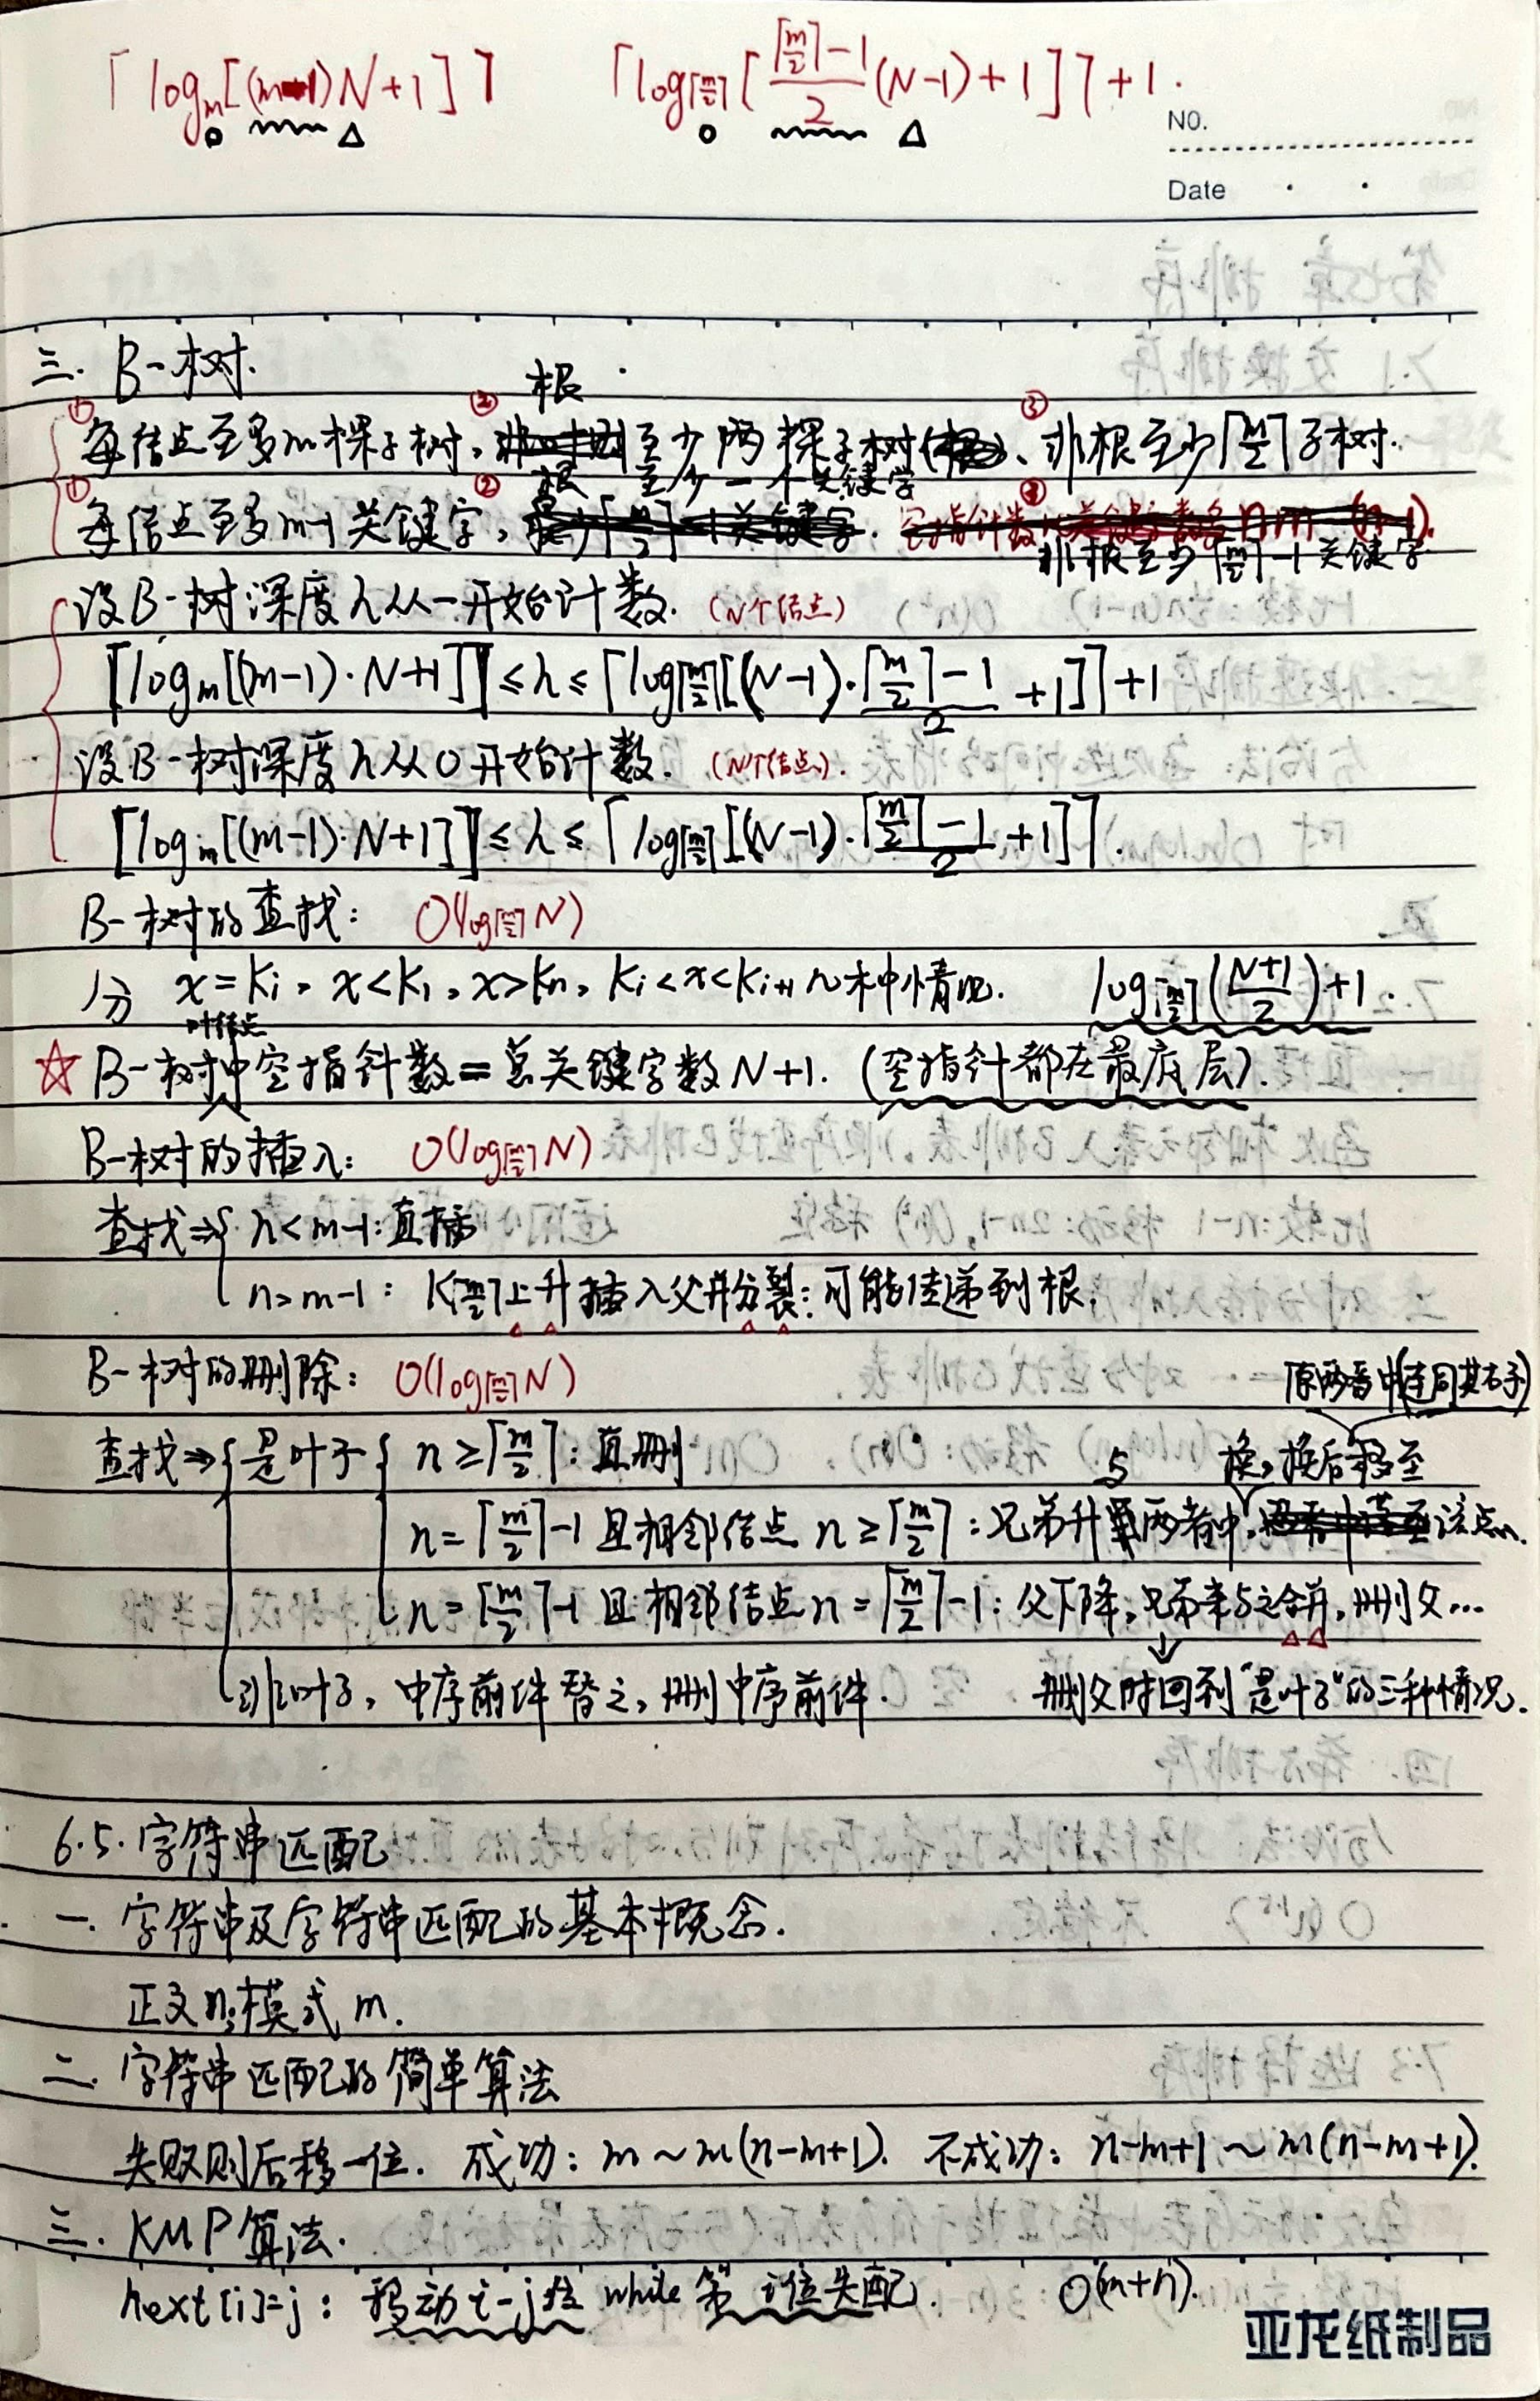 ⌈log_m[(m-1)N+1]⌉ ⌈log_⌈m/2⌉[(⌈m/2⌉-1)/2 (N-1)+1]⌉+1.
NO.
Date
三. B-树.
根
① 每结点至多m棵子树, ② 至少两棵子树、③ 非根至少⌈m/2⌉子树.
根 至少一个关键字
① 每结点至多m-1关键字, ② ③
非根至少⌈m/2⌉-1关键字
设B-树深度h从一开始计数. (N个结点)
⌈log_m[(m-1)·N+1]⌉≤h≤⌈log_⌈m/2⌉[(N-1)·(⌈m/2⌉-1)/2+1]⌉+1
设B-树深度h从0开始计数. (N个结点).
⌈log_m[(m-1)·N+1]⌉≤h≤⌈log_⌈m/2⌉[(N-1)·(⌈m/2⌉-1)/2+1]⌉.
B-树的查找: O(log_⌈m/2⌉N)
分 x=Ki, x<K1, x>Kn, Ki<x<Ki+1 几种情况. log_⌈m/2⌉((N+1)/2)+1.
叶结点
☆ B-树中空指针数=总关键字数N+1. (空指针都在最底层).
B-树的插入: O(log_⌈m/2⌉N)
查找⇒{ n<m-1: 直插
n=m-1: K⌈m/2⌉上升插入父并分裂: 可能传递到根.
B-树的删除: O(log_⌈m/2⌉N)
原两者中(连同其右子)
查找⇒{ 是叶子{ n≥⌈m/2⌉: 直删
与 换, 换后移至
n=⌈m/2⌉-1 且相邻结点 n≥⌈m/2⌉: 兄弟升 两者中, 该点n.
n=⌈m/2⌉-1 且相邻结点 n=⌈m/2⌉-1: 父下降, 兄弟来与之合并, 删父…
非叶子, 中序前件替之, 删中序前件. 删父时回到"是叶子"的三种情况.
6.5. 字符串匹配
一. 字符串及字符串匹配的基本概念.
正文n; 模式m.
二. 字符串匹配的简单算法
失败则后移一位. 成功: m~m(n-m+1). 不成功: n-m+1~m(n-m+1).
三. KMP算法.
next[i]=j: 移动i-j位 while 第i位失配. O(m+n).
亚龙纸制品